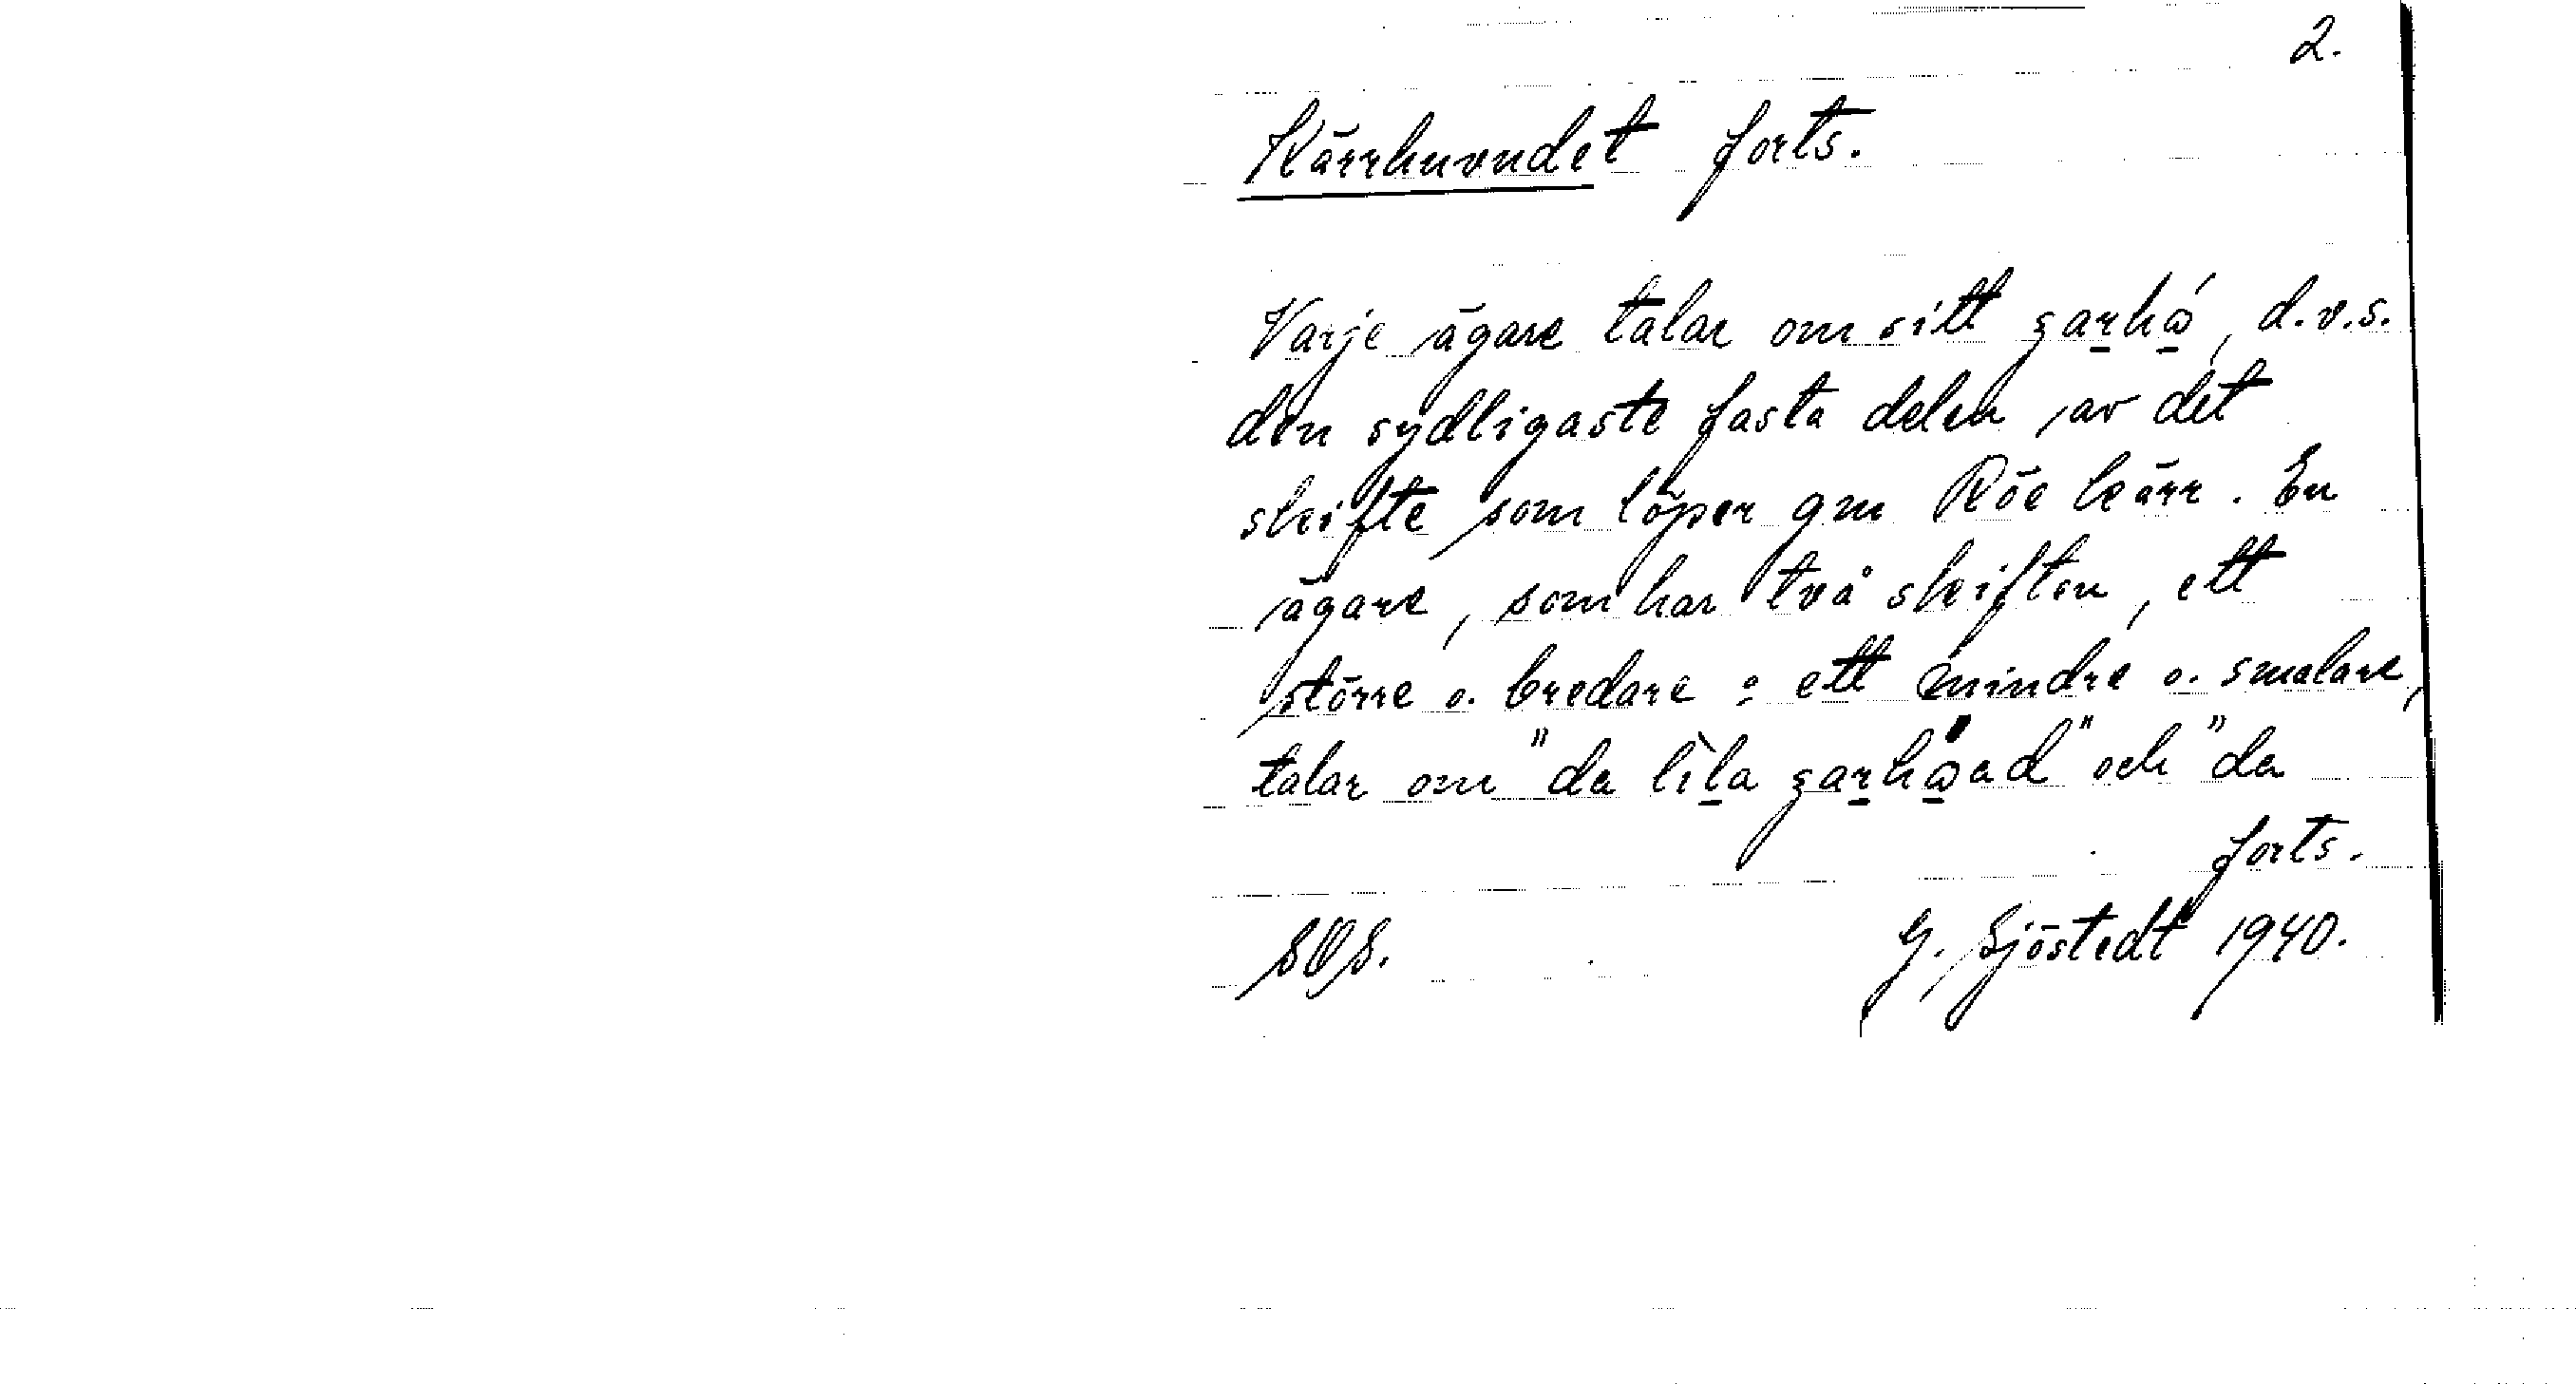 2.
Kärrhuvudet forts.
Varje ägare talar om sitt ʒa̱rhɷ̱́, d.v.s.
den sydligaste fasta delen av det
skifte som löper gm Röe kärr. En
ägare, som har två skiften, ett
större o. bredare o ett mindre o. smalare,
talar om "da lìḻa ʒa̱rhɷ̱́ad" och "da
forts.
SOS.
G. Sjöstedt 1940.